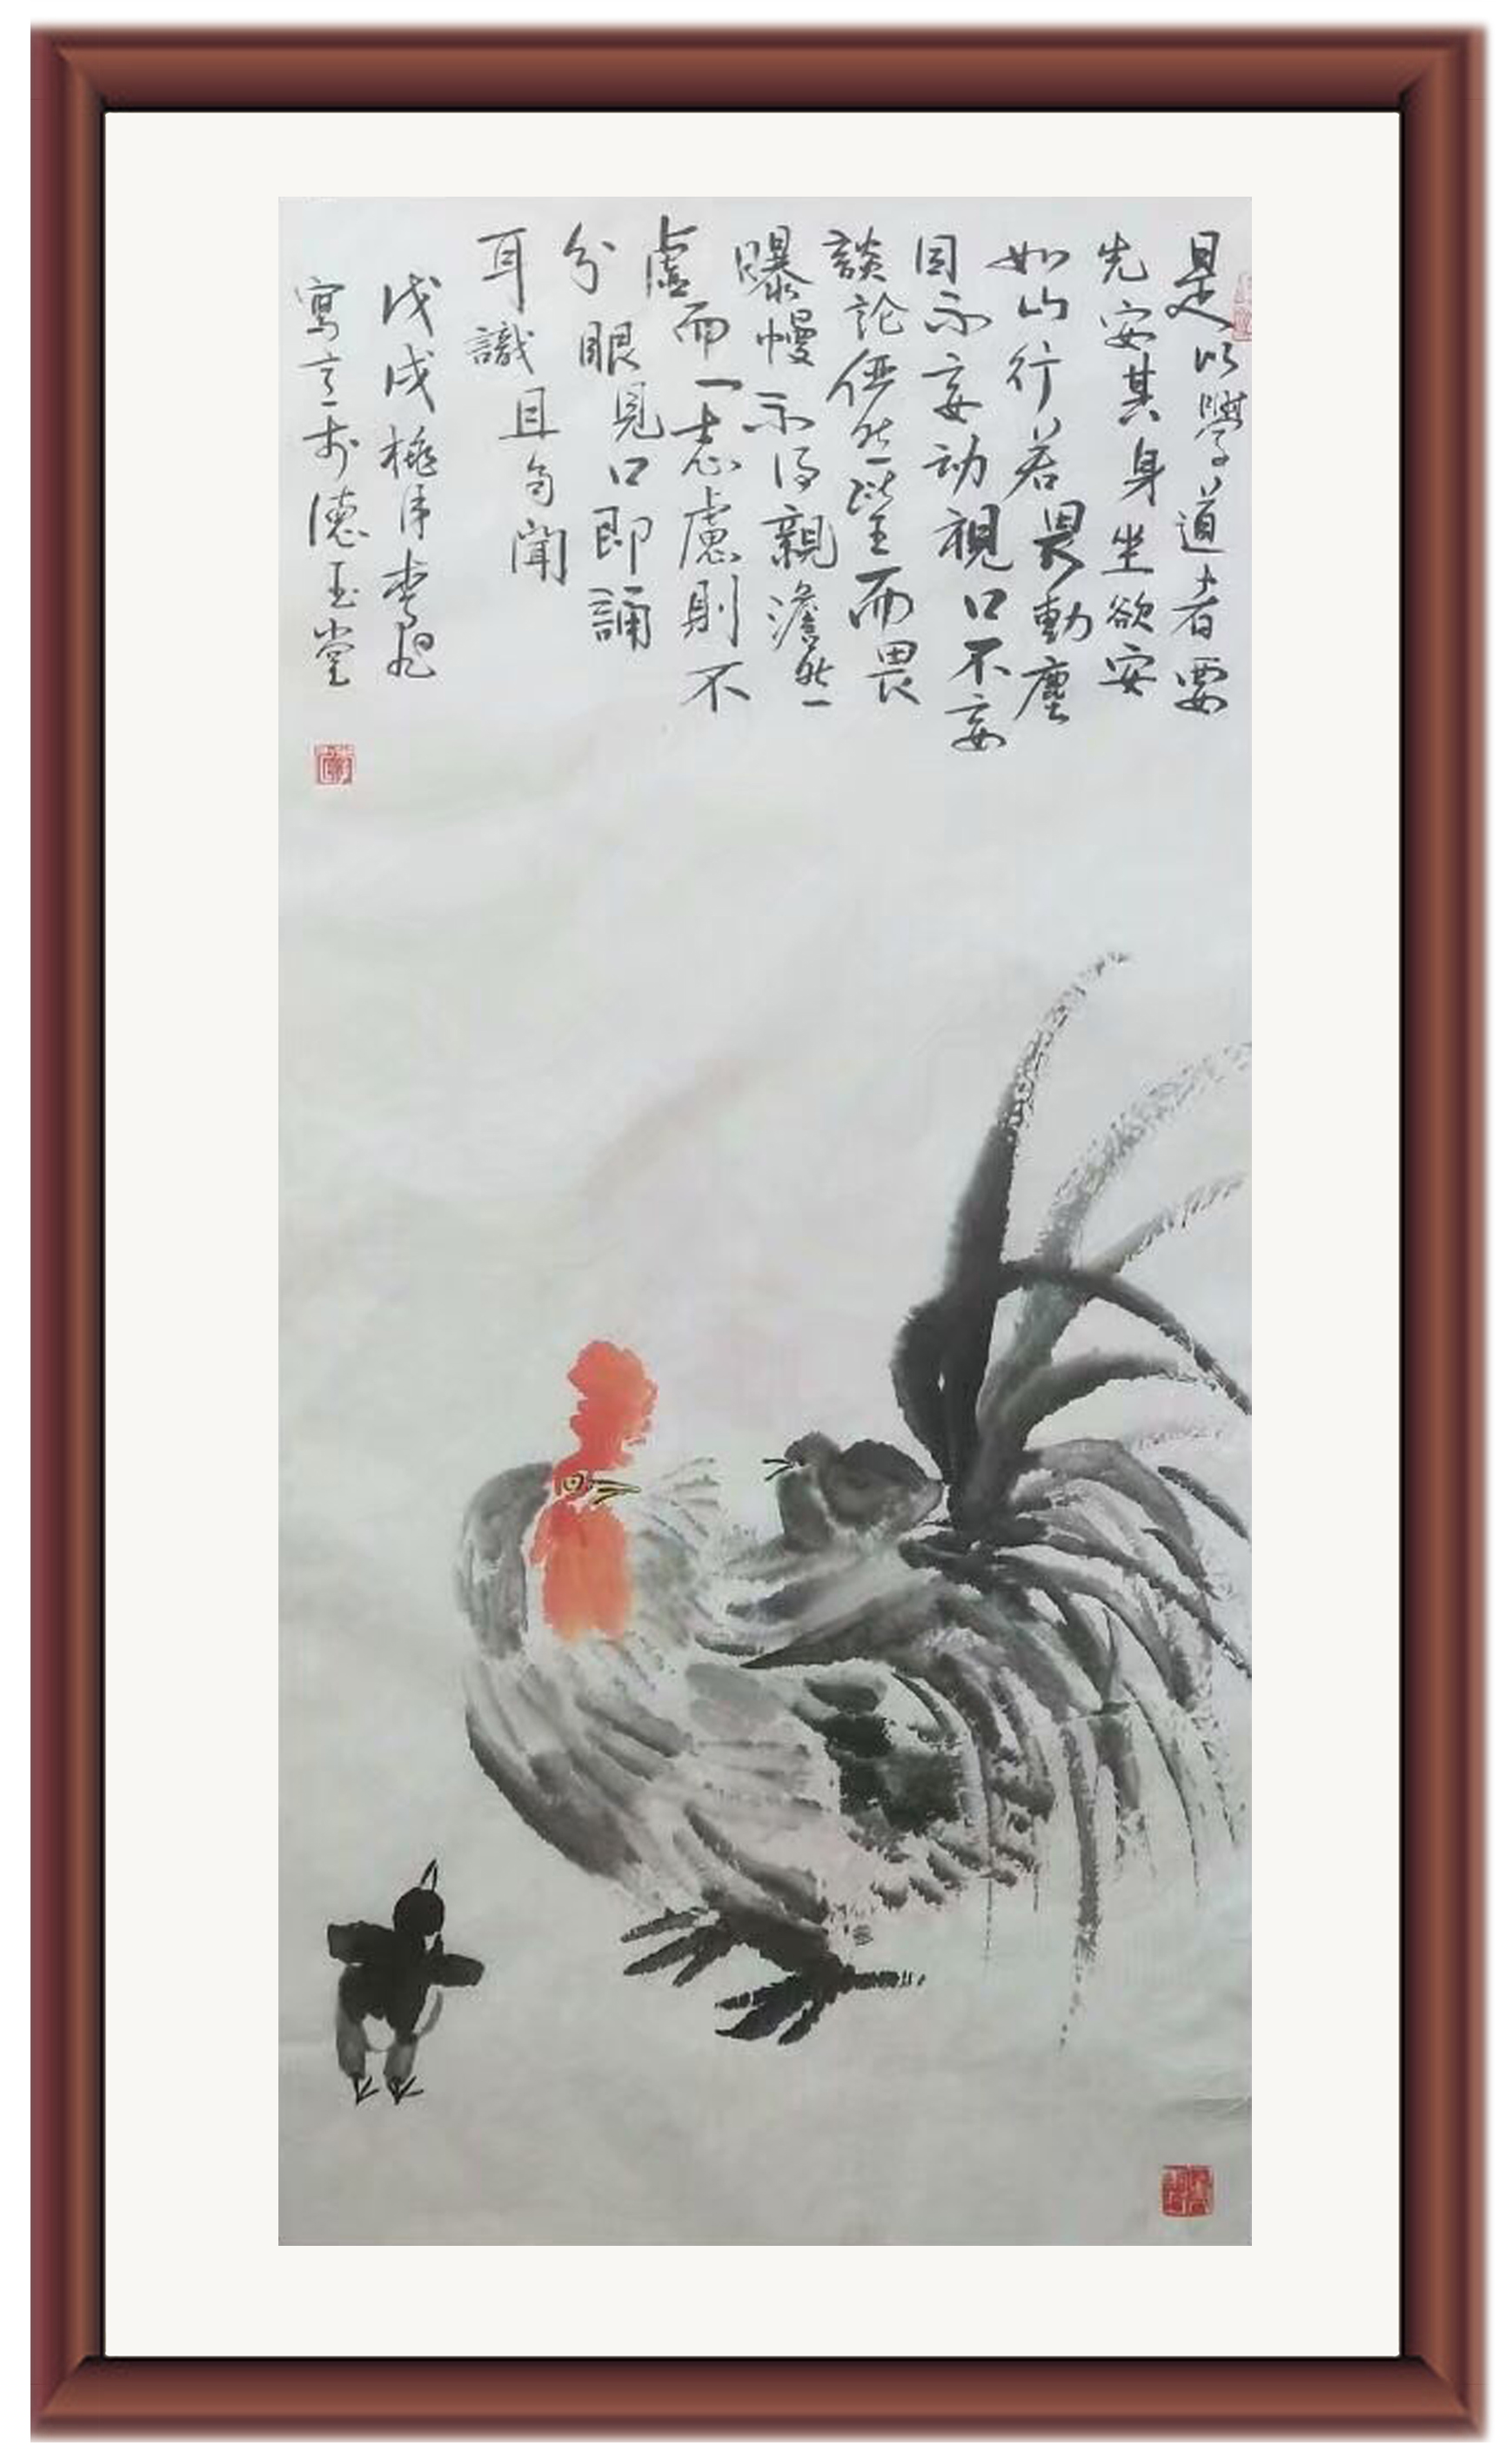 是以學道者要
先安其身坐欲安
如山行若畏動塵
目不妄动視口不妄
談論俨然望而畏
曝慢不得親澹然
虛而一志慮則不
分眼見口即誦
耳識且聞
戊戌桃津李旭
寫於德玉堂